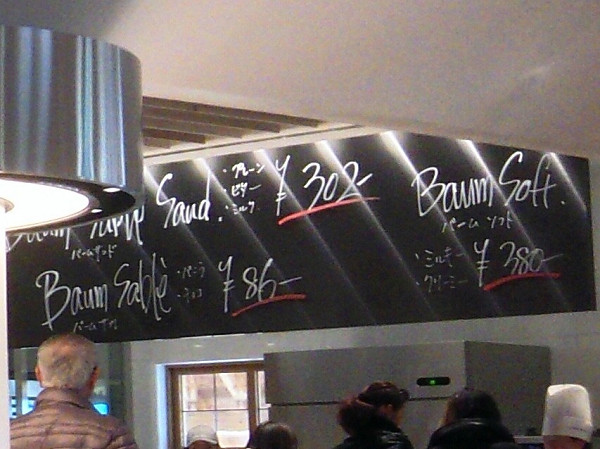 Baum Sablé Sand
・プレーン
・ビター
・ミルク
¥302-
バームサンド
Baum Sablé
・バニラ
・チョコ
¥86-
バームサブレ
Baum Soft.
バーム ソフト
・ミルキー
・クリーミー
¥380-